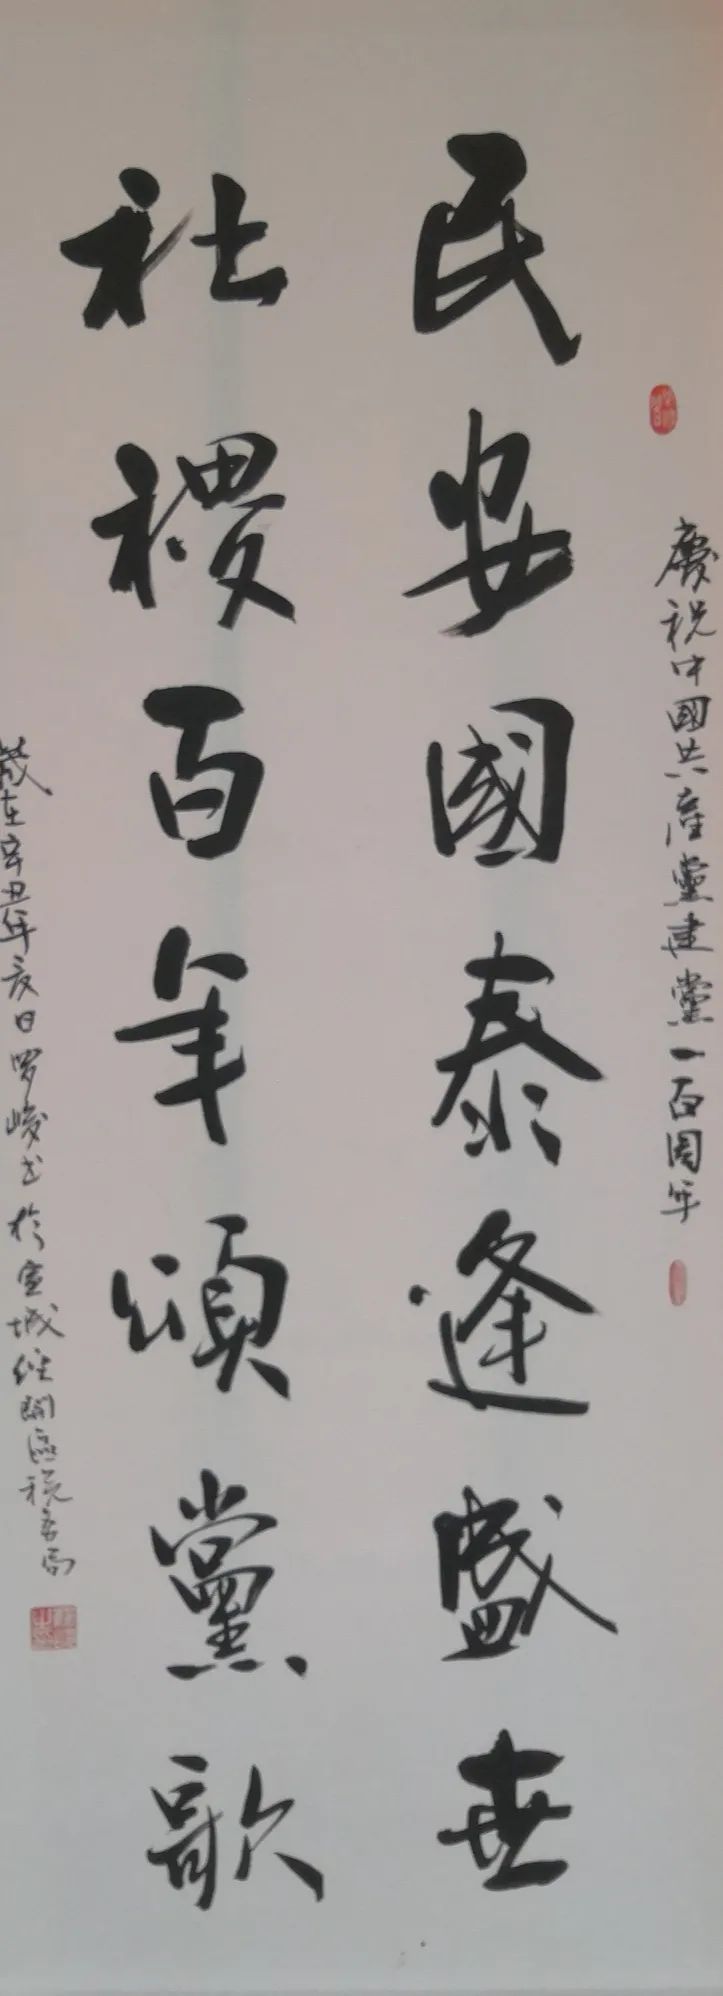 慶祝中國共産黨建黨一百周年
民安國泰逢盛世
社稷百年頌黨歌
歲在辛丑年亥日罗峻书於宣城经開區税务局